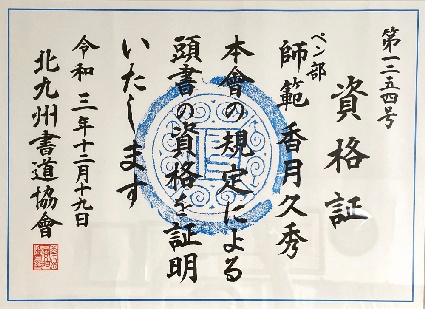 第一二五四号
資格証
ペン部
師範 香月久秀
本會の規定による
頭書の資格を証明
いたします
令和三年十二月十九日
北九州書道協會